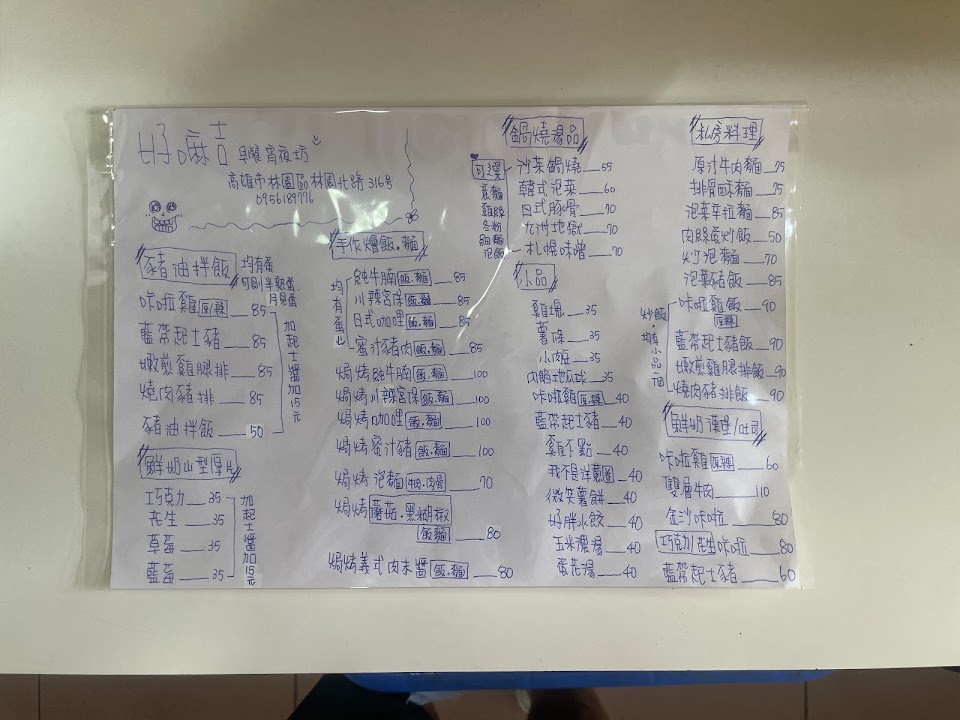 好嘛吉 早餐宵夜坊
高雄市林園區林園北路316號
豬油拌飯 均有蛋
可別半熟蛋.
咔啦雞 原.辣 85
藍帶起士豬 85
嫩煎雞腿排 85
燒肉豬排 85
豬油拌飯 50
加起士醬加15元
鮮奶山型厚片
巧克力 35
花生 35
草莓 35
藍莓 35
加起士醬加15元
手作燴飯.麵
均有蛋
純牛腩 飯.麵 85
川辣宮保 飯.麵 85
日式咖哩 飯.麵 85
蜜汁豬肉 飯.麵 85
焗烤純牛腩 飯.麵 100
焗烤川辣宮保 飯.麵 100
焗烤咖哩 飯.麵 100
焗烤蜜汁豬 飯.麵 100
焗烤泡麵 牛肉.肉骨 70
焗烤蘑菇.黑胡椒
飯麵 80
焗烤義式肉末醬 飯.麵 80
鍋燒湯品
可選
意麵
雞絲
冬粉
細麵
泡飯
沙茶鍋燒 55
韓式泡菜 60
日式豚骨 70
九洲地獄 70
札幌味噌 70
小品
雞塊 35
薯條 35
小肉豆 35
內餡地瓜球 35
咔啦雞 原.辣 40
藍帶起士豬 40
雞不點 40
我不是洋蔥圈 40
微笑薯餅 40
好胖水餃 40
玉米濃湯 40
蛋花湯 40
私房料理
原汁牛肉麵 75
排骨酥麵 75
泡菜辛拉麵 85
肉絲蛋炒飯 50
炒泡麵 70
泡菜豬飯 85
炒飯.均有小品一個
咔啦雞飯 90
原辣
藍帶起士豬飯 90
嫩煎雞腿排飯 90
燒肉豬排飯 90
鮮奶漢堡/吐司
咔啦雞 原.辣 60
雙層牛肉 110
金沙咔啦 80
巧克力/花生咔啦 80
藍帶起士豬 60